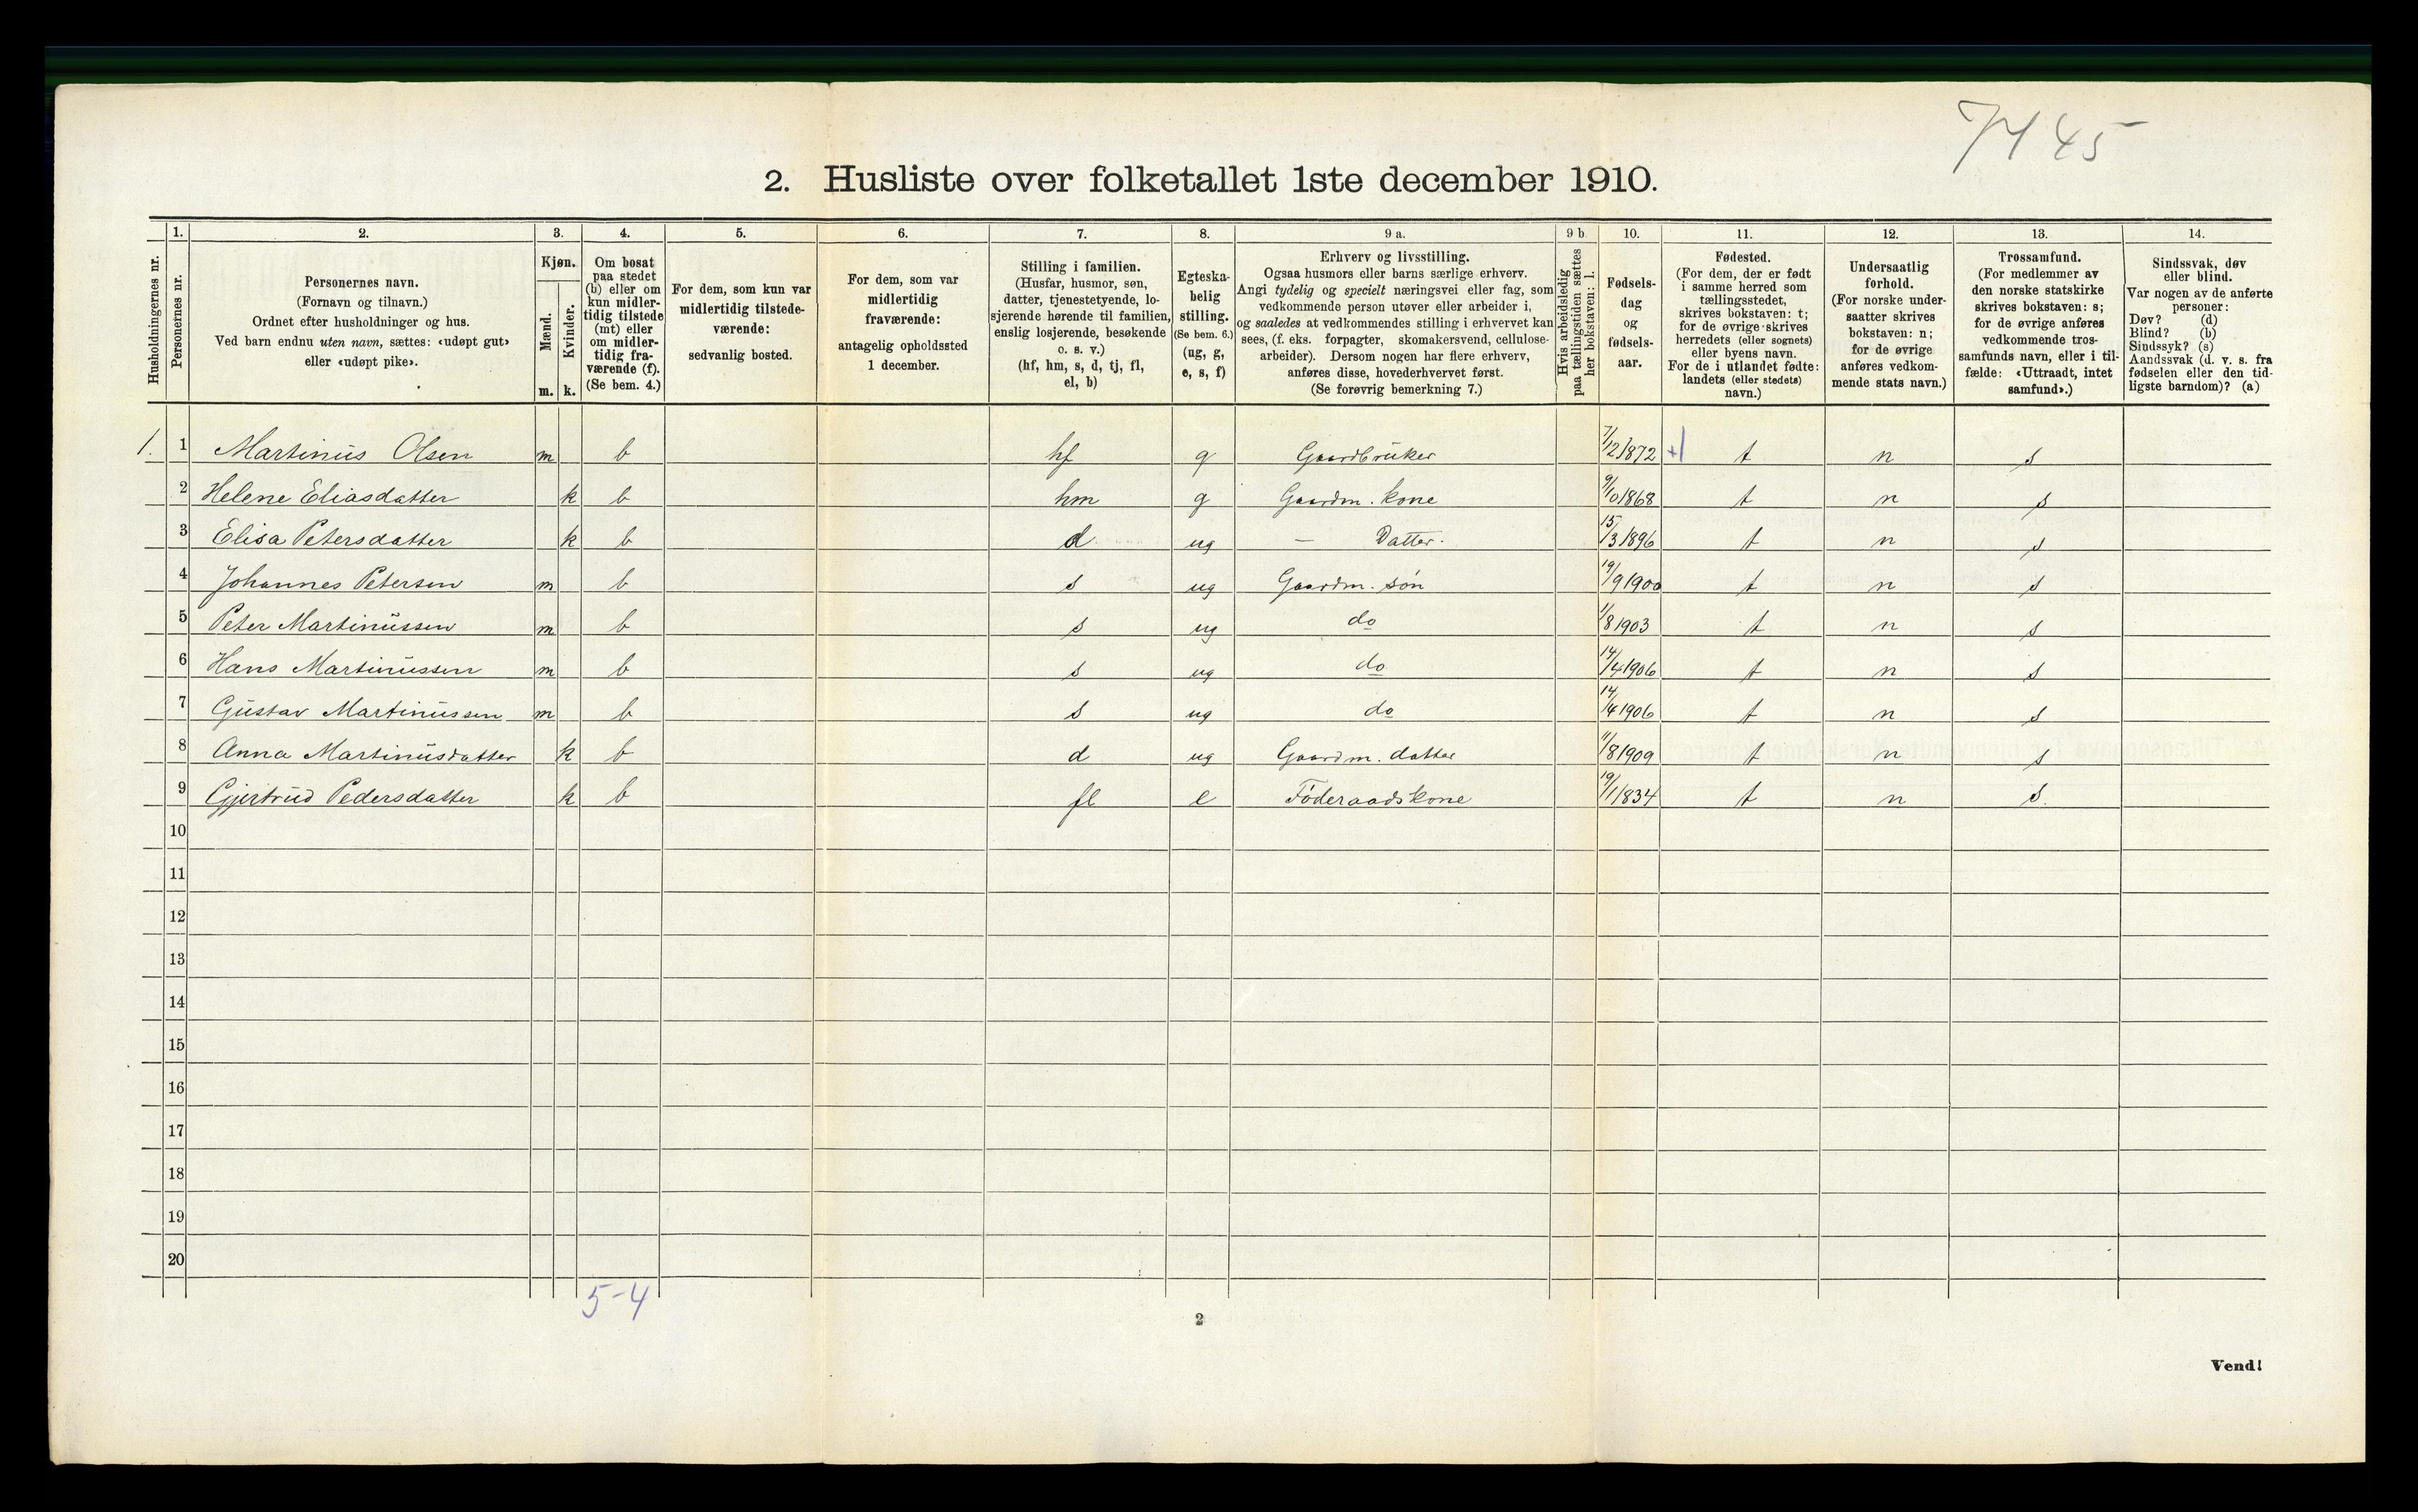 7445
2. Husliste over folketallet 1ste december 1910.
Husholdningernes nr.
1.
Personernes nr.
2.
Personernes navn.
(Fornavn og tilnavn.)
Ordnet efter husholdninger og hus.
Ved barn endnu uten navn, sættes: «udøpt gut»
eller «udøpt pike».
3.
Kjøn.
Mænd.
m.
Kvinder.
k.
4.
Om bosat
paa stedet
(b) eller om
kun midler-
tidig tilstede
(mt) eller
om midler-
tidig fra-
værende (f).
(Se bem. 4.)
5.
For dem, som kun var
midlertidig tilstede-
værende:
sedvanlig bosted.
6.
For dem, som var
midlertidig
fraværende:
antagelig opholdssted
1 december.
7.
Stilling i familien.
(Husfar, husmor, søn,
datter, tjenestetyende, lo-
sjerende hørende til familien,
enslig losjerende, besøkende
o. s. v.)
(hf, hm, s, d, tj, fl,
el, b)
8.
Egteska-
belig
stilling.
(Se bem. 6.)
(ug, g,
e, s, f)
9 a.
Erhverv og livsstilling.
Ogsaa husmors eller barns særlige erhverv.
Angi tydelig og specielt næringsvei eller fag, som
vedkommende person utøver eller arbeider i,
og saaledes at vedkommendes stilling i erhvervet kan
sees, (f. eks. forpagter, skomakersvend, cellulose-
arbeider). Dersom nogen har flere erhverv,
anføres disse, hovederhvervet først.
(Se forøvrig bemerkning 7.)
9 b.
Hvis arbeidsledig
paa tællingstiden sættes
her bokstaven: l.
10.
Fødsels-
dag
og
fødsels-
aar.
11.
Fødested.
(For dem, der er født
i samme herred som
tællingsstedet,
skrives bokstaven: t;
for de øvrige skrives
herredets (eller sognets)
eller byens navn.
For de i utlandet fødte:
landets (eller stedets)
navn.)
12.
Undersaatlig
forhold.
(For norske under-
saatter skrives
bokstaven: n;
for de øvrige
anføres vedkom-
mende stats navn.)
13.
Trossamfund.
(For medlemmer av
den norske statskirke
skrives bokstaven: s;
for de øvrige anføres
vedkommende tros-
samfunds navn, eller i til-
fælde: «Uttraadt, intet
samfund».)
14.
Sindssvak, døv
eller blind.
Var nogen av de anførte
personer:
Døv? (d)
Blind? (b)
Sindssyk? (s)
Aandssvak (d. v. s. fra
fødselen eller den tid-
ligste barndom)? (a)
1. 1 Martinus Olsen m b hf g Gaardbruker 7/12 1872 +1 t n s
2 Helene Eliasdatter k b hm g Gaardm. kone 9/10 1868 t n s
3 Elisa Petersdatter k b d ug — Datter. 15/3 1896 t n s
4 Johannes Petersen m b s ug Gaardm. søn 19/9 1900 t n s
5 Peter Martinussen m b s ug do 1/8 1903 t n s
6 Hans Martinussen m b s ug do 14/4 1906 t n s
7 Gustav Martinussen m b s ug do 14/4 1906 t n s
8 Anna Martinusdatter k b d ug Gaardm. datter 11/8 1909 t n s
9 Gjertrud Pedersdatter k b fl e Föderaadskone 19/1 1834 t n s.
10
11
12
13
14
15
16
17
18
19
20
5-4
2
Vend!